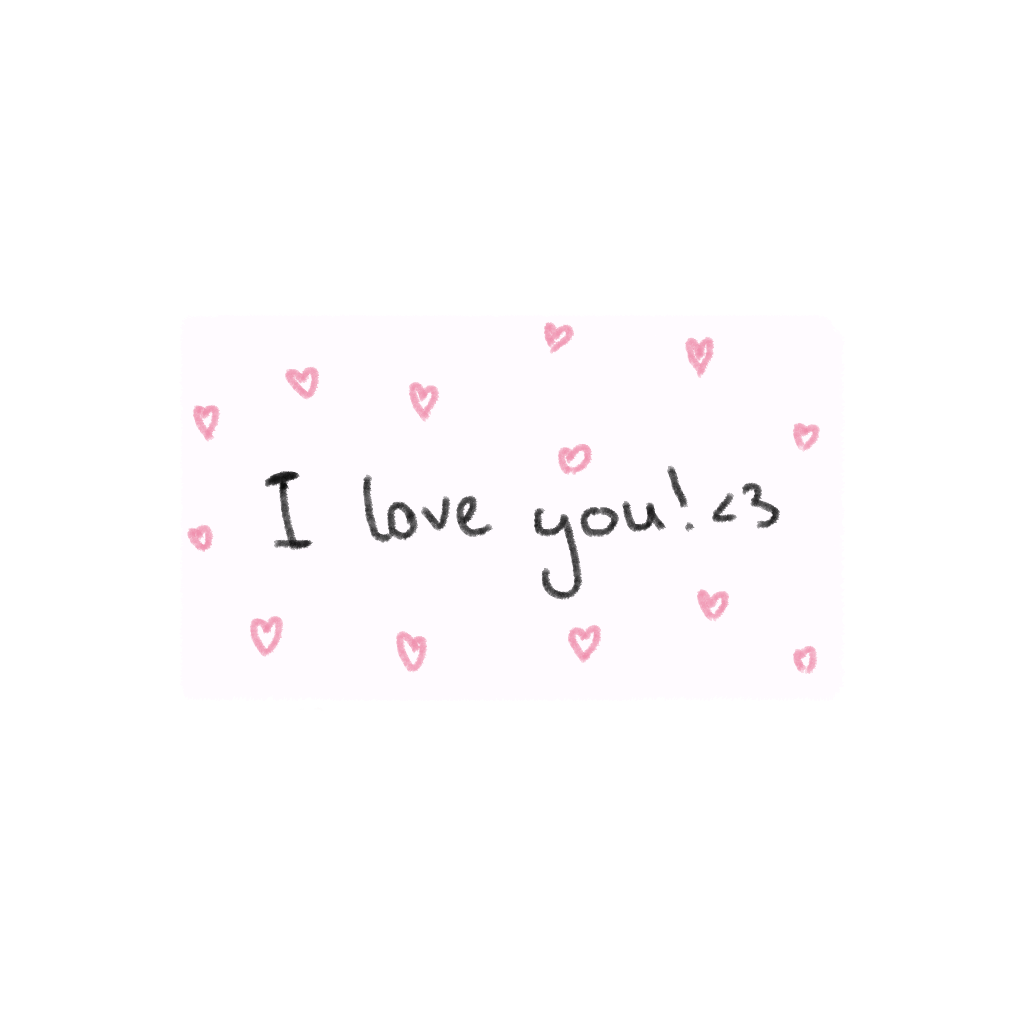 I love you! <3